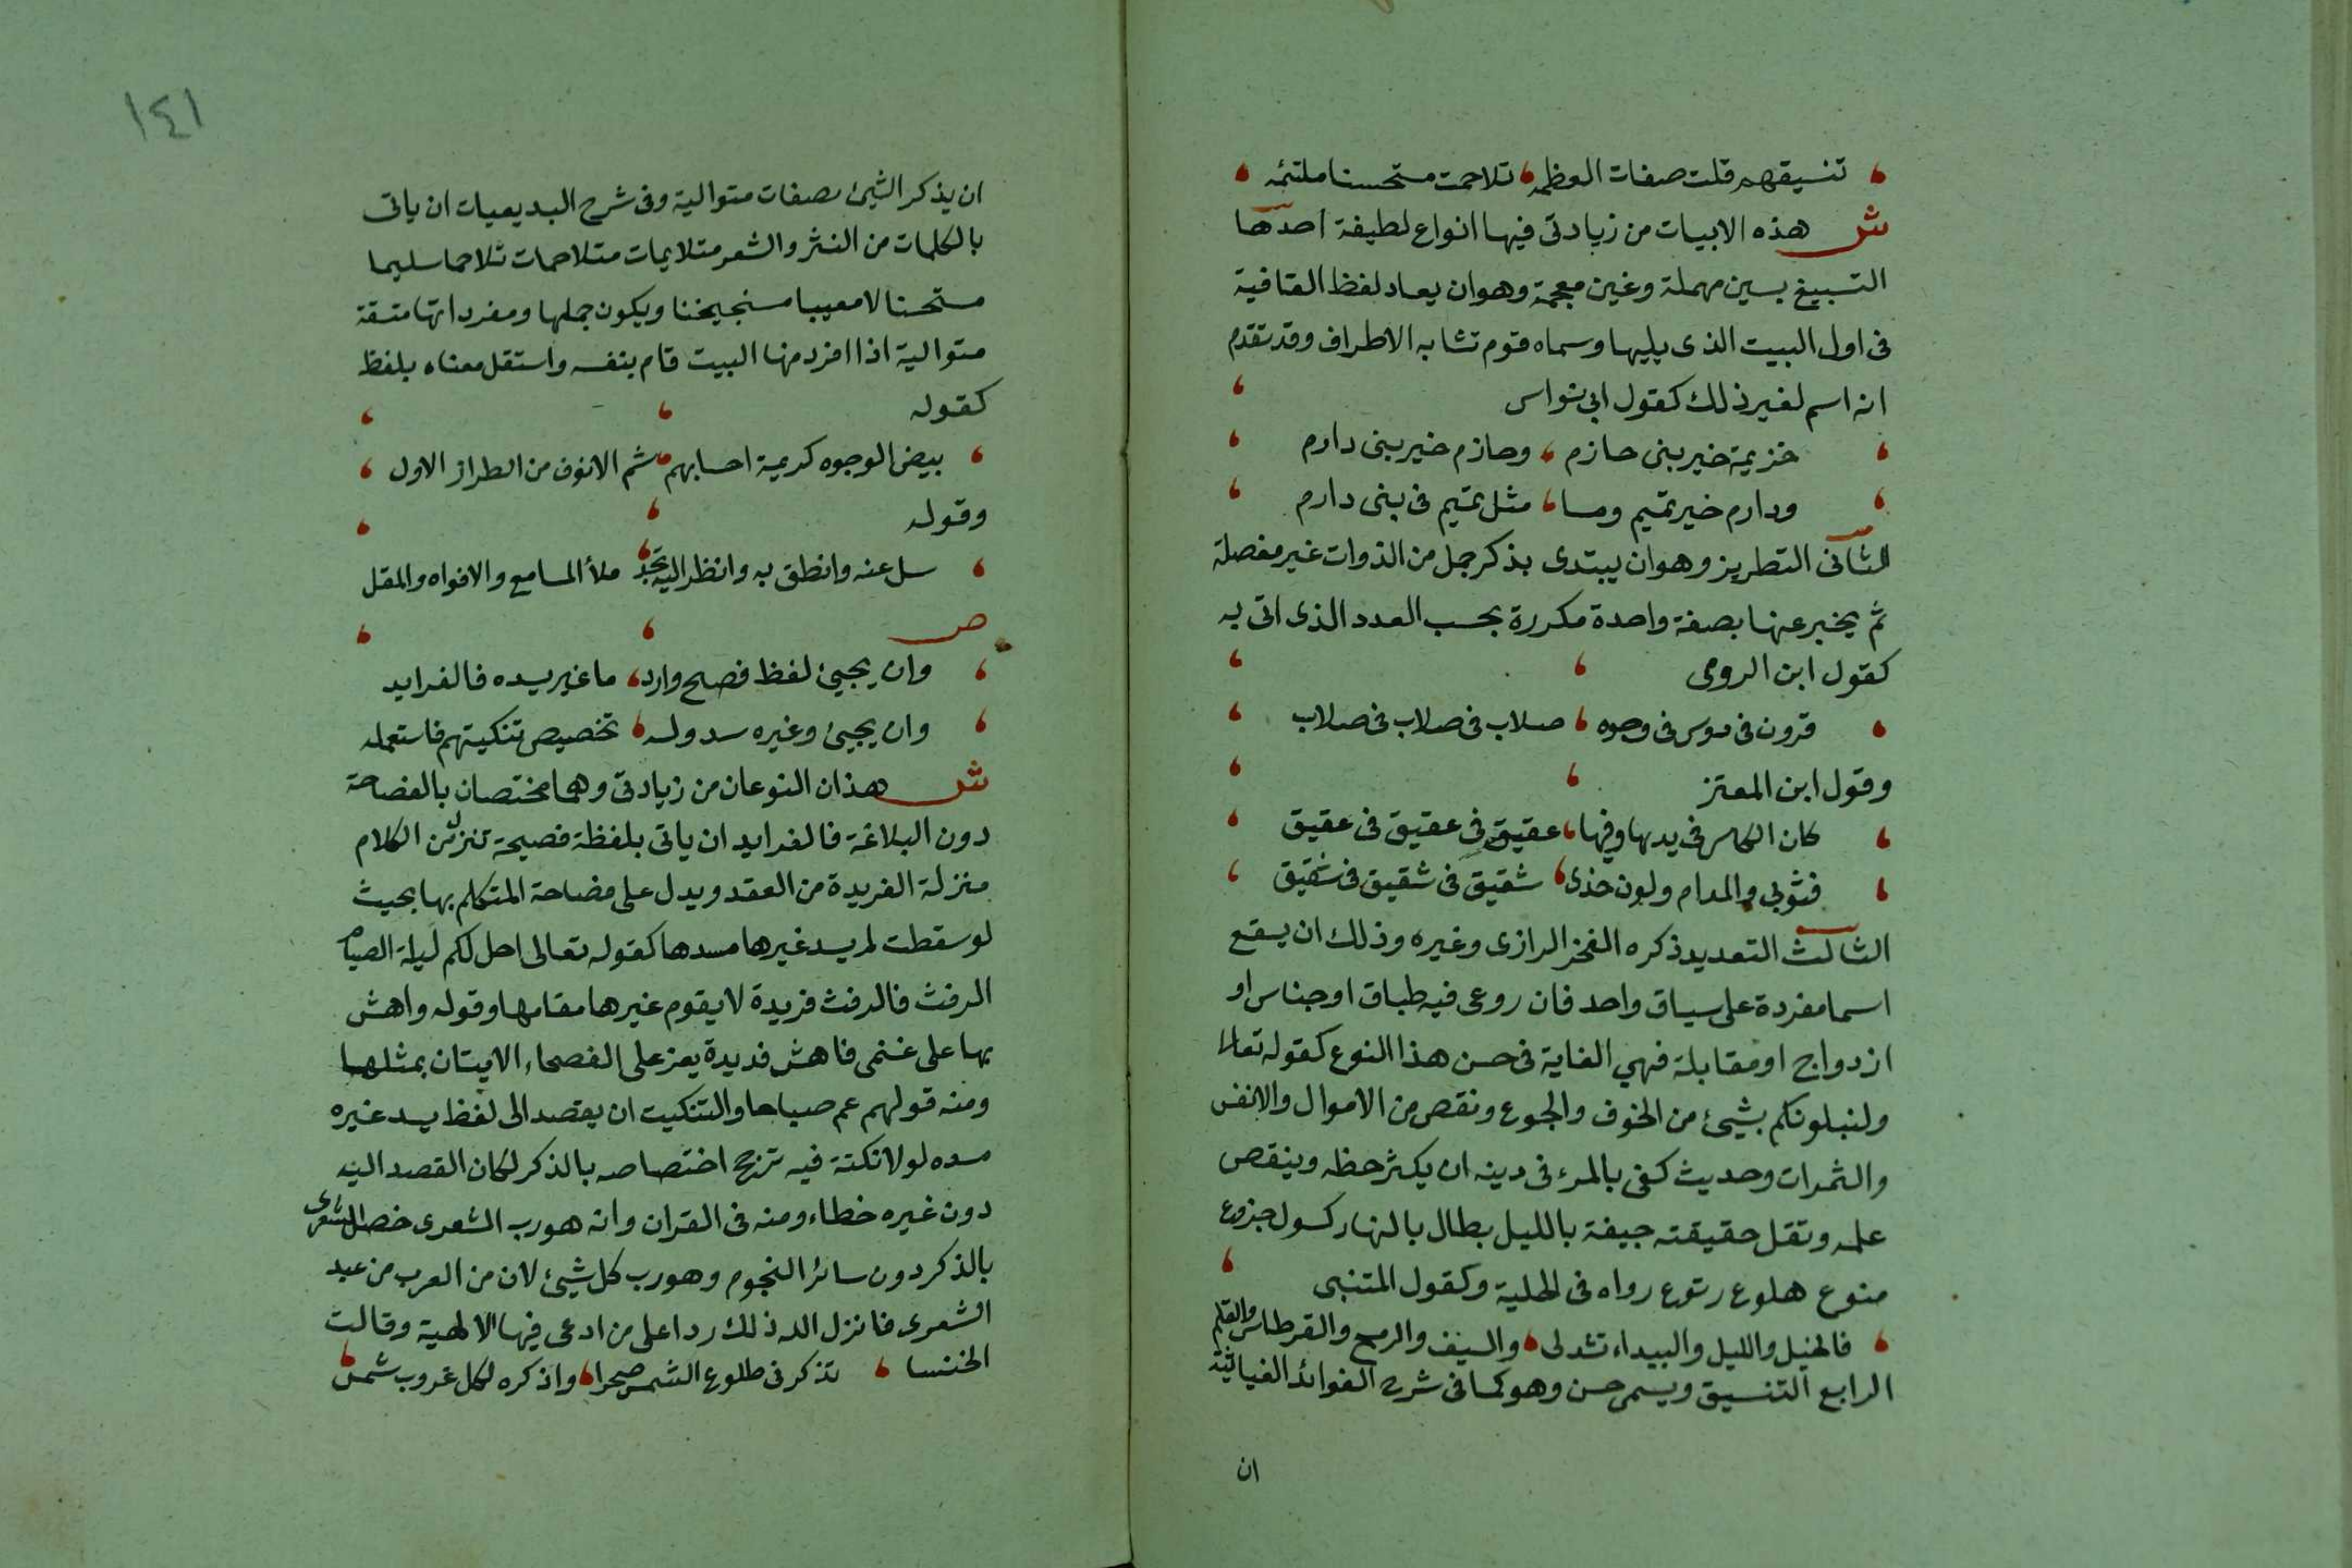 تنسيقهم قلت صفات العظمه ، تلاحمت مستحسنا ملتئمه
ش هذه الابيات من زيادتى فيها انواع لطيفة احدها
التسبيغ بسين مهملة وغين معجمة وهوان يعاد لفظ القافية
فى اول البيت الذى يليها وسماه قوم تشابه الاطراف وقد تقدم
انه اسم لغير ذلك كقول ابى نواس
خزيمة خير بنى حازم ، وحازم خير بنى دارم
ودارم خير تميم وما ، مثل تميم فى بنى دارم
الثانى التطريز وهوان يبتدى بذكر جمل من الذوات غير مفصلة
ثم يخبر عنها بصفة واحدة مكررة بحسب العدد الذى اتى به
كقول ابن الرومى
قرون فى روس فى وجوه ، صلاب فى صلاب فى صلاب
وقول ابن المعتز
كان الكاس فى يدها وفيها ، عقيق فى عقيق فى عقيق
فثوبى والمدام ولون خدى ، شقيق فى شقيق فى شقيق
الثالث التعديد ذكره الفخر الرازى وغيره وذلك ان يقع
اسما مفردة على سياق واحد فان روعى فيه طباق او جناس او
ازدواج او مقابلة فهي الغاية فى حسن هذا النوع كقوله تعالى
ولنبلونكم بشيئ من الخوف والجوع ونقص من الاموال والانفس
والثمرات وحديث كفى بالمرء فى دينه ان يكثر حظه وينقص
علمه وتقل حقيقته جيفة بالليل بطال بالنهار كسول جزوع
منوع هلوع رتوع رواه فى الحلية وكقول المتنبى
فالخيل والليل والبيداء تشهد لى ، والسيف والرمح والقرطاس والقلم
الرابع التنسيق ويسمى حسن وهو كما فى شرح الفوائد الغياثية
ان
١٤١
ان يذكر الشيئ بصفات متوالية وفى شرح البديعيات ان ياتى
بالكلمات من النثر والشعر متلايمات متلاحمات تلاحما سليما
مستحسنا لا معيبا ويكون جملها ومفرداتها متسقة
متوالية اذا افرد منها البيت قام بنفسه واستقل معناه بلفظ
كقوله
بيض الوجوه كريمة احسابهم ، شم الانوف من الطراز الاول
وقوله
سل عنه وانطق به وانظر اليه تجد ، ملأ المسامع والافواه والمقل
ص
وان يجيئ لفظ فصح وارد ، ما غير يسده فالفرايد
وان يجيئ وغيره سد وله ، تخصيص تنكيتهم فاستعمله
ش هذان النوعان من زيادتى وهما مختصان بالفصاحة
دون البلاغة فالفرايد ان ياتى بلفظة فصيحة تنزل من الكلام
منزلة الفريدة من العقد ويدل على فصاحة المتكلم بها بحيث
لو سقطت لم يسد غيرها مسدها كقوله تعالى احل لكم ليلة الصيام
الرفث فالرفث فريدة لا يقوم غيرها مقامها وقوله واهش
بها على غنمى فاهش فريدة يعز على الفصحاء الايتان بمثلها
ومنه قولهم عم صباحا والتنكيت ان يقصد الى لفظ يسد غيره
مسده لولا نكتة فيه ترجح اختصاصه بالذكر لكان القصد اليه
دون غيره خطاء ومنه فى القران وانه هو رب الشعرى خص الشعرى
بالذكر دون سائر النجوم وهو رب كل شيئ لان من العرب من عبد
الشعرى فانزل الله ذلك ردا على من ادعى فيها الالهية وقالت
الخنسا ، يذكرنى طلوع الشمس صخرا ، واذكره لكل غروب شمس